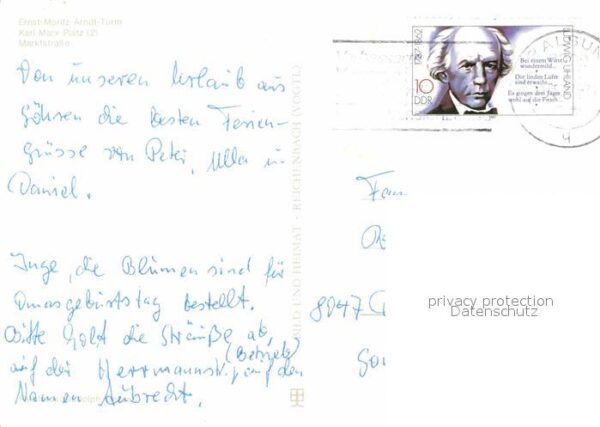 Ernst-Moritz-Arndt-Turm
Karl-Marx-Platz (2)
Marktstraße
Von unseren Urlaub aus
Göhren die besten Ferien-
grüsse von Peter, Ulla u
Daniel.
Inge, die Blumen sind für
Omasgeburtstag bestellt.
Bitte holt die Sträuße ab,
(Betrieb)
auf der Herrmannstr, auf den
Namen Aubrecht.
BILD UND HEIMAT · REICHENBACH (VOGTL)
1787-1862
10
DDR
LUDWIG UHLAND
Bei einem Wirte
wundermild...
Die linden Lüfte
sind erwacht...
Es gingen drei Jäger
wohl auf die Pirsch...
Fam
8047
privacy protection
Datenschutz